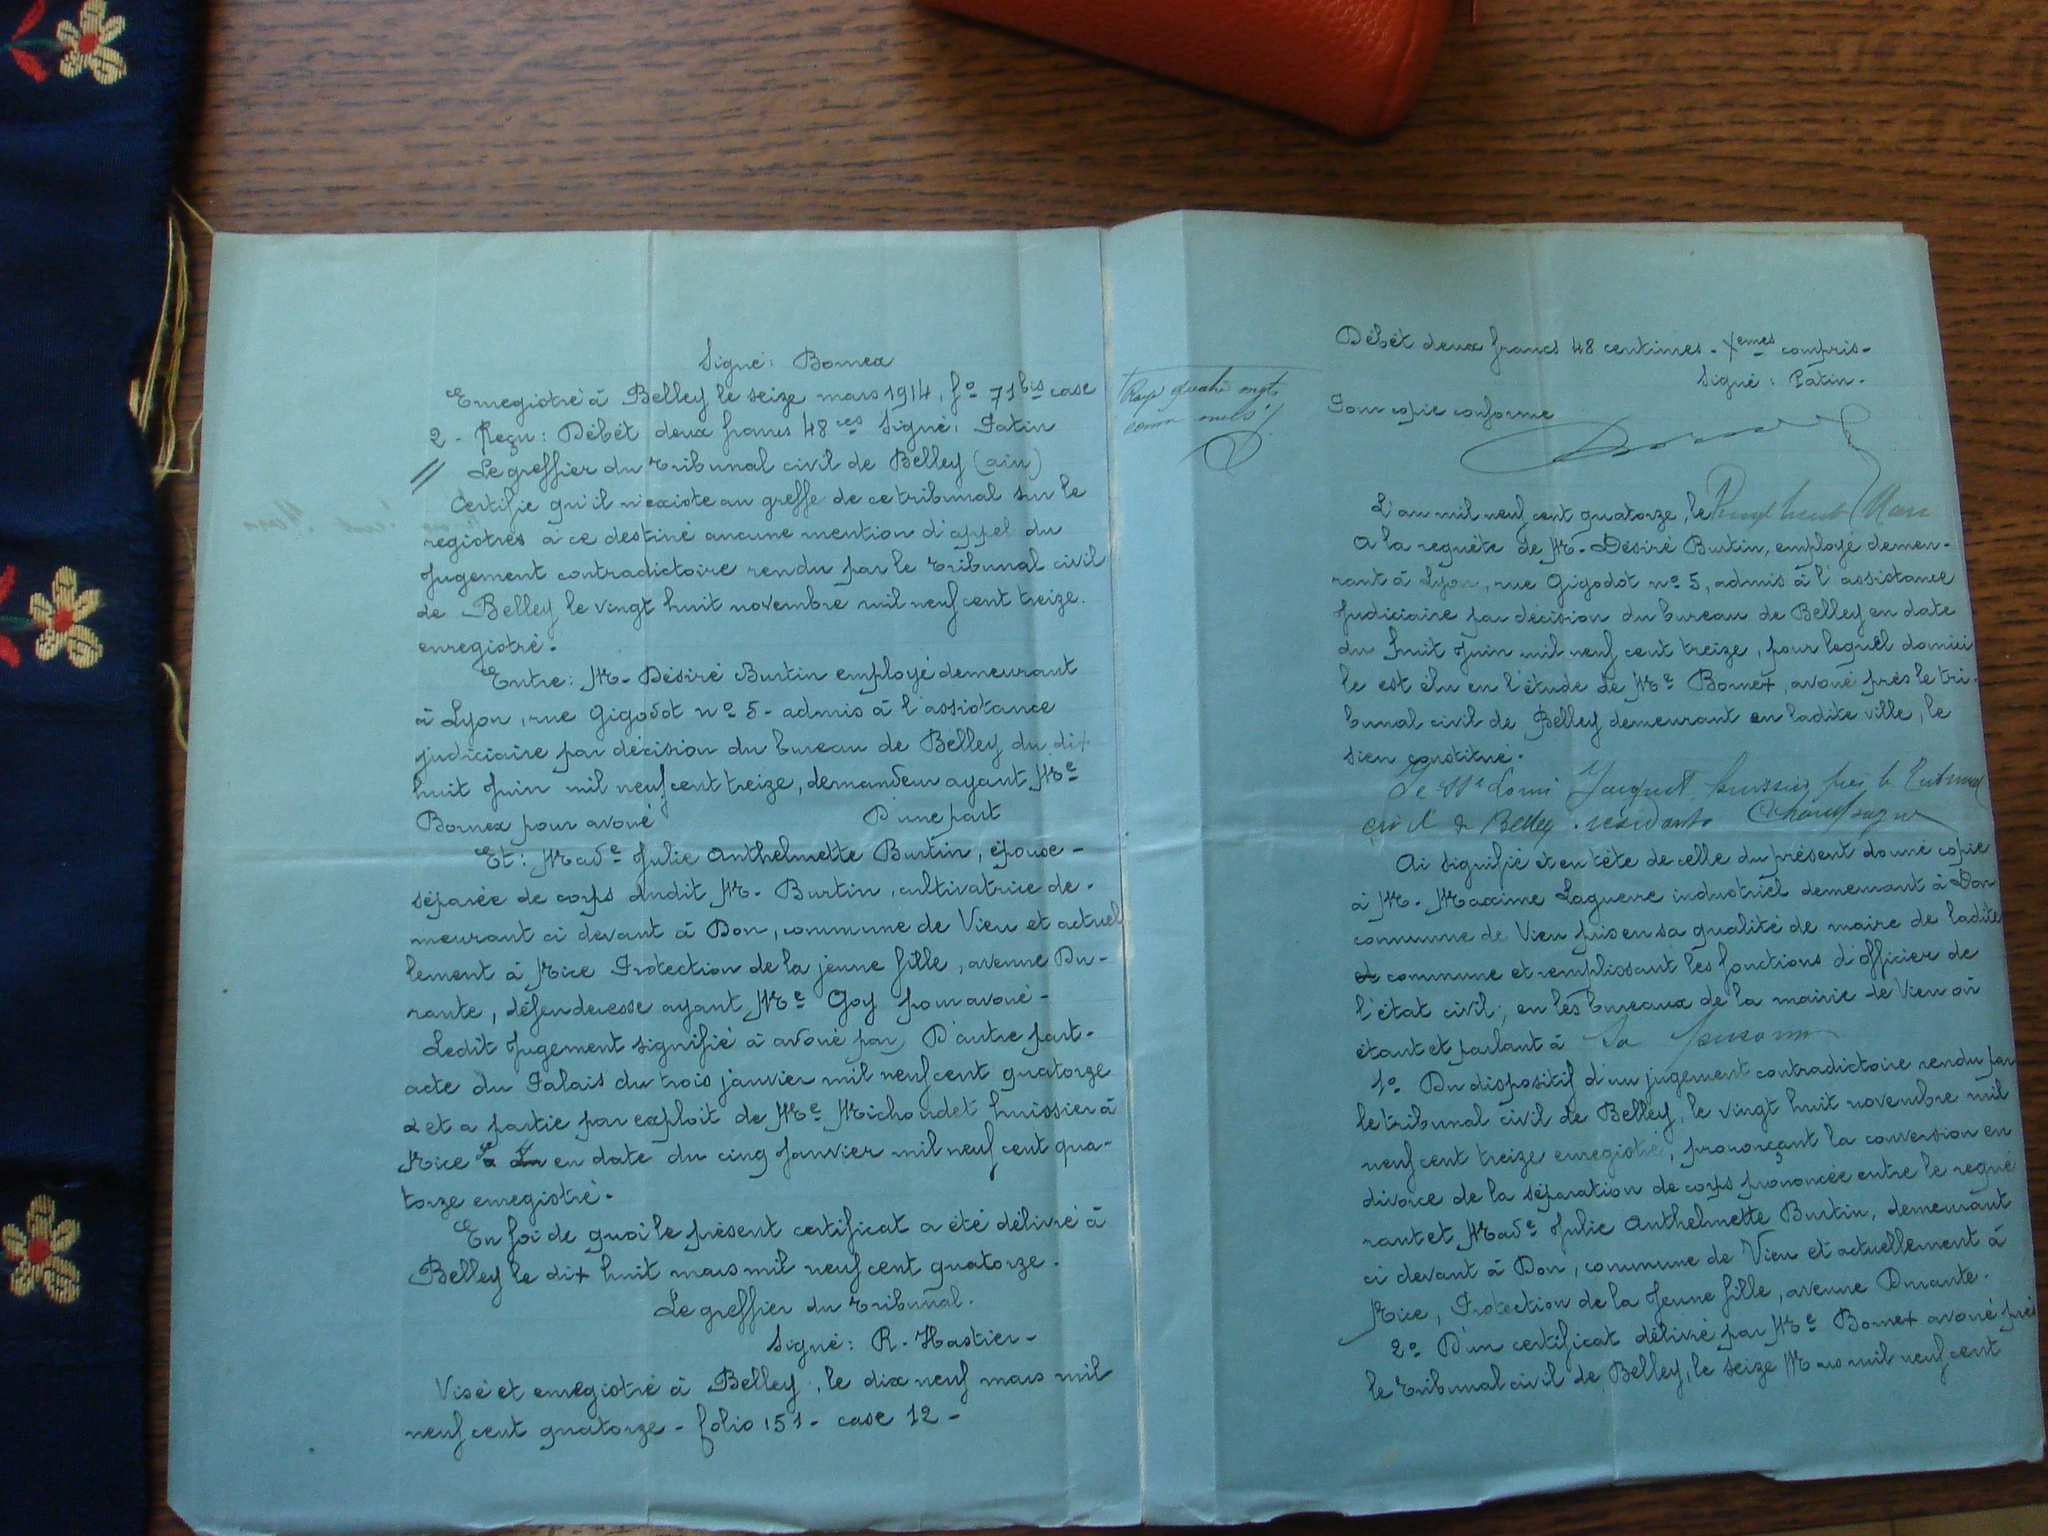 Signé: Bornex
Enregistré à Belley le seize mars 1914, fo 71 bis case
2 - Reçu: Débêt deux francs 48 ces Signé: Patin
// Le greffier du Tribunal civil de Belley (ain)
Certifie qu'il n'existe au greffe de ce tribunal sur le
registres à ce destiné aucune mention d'appel du
jugement contradictoire rendu par le Tribunal civil
de Belley le vingt huit novembre mil neuf cent treize.
enregistré.
Entre: M. Désiré Burtin employé demeurant
à Lyon, rue Gigodot no 5 - admis à l'assistance
judiciaire par décision du bureau de Belley du dix
huit Juin mil neuf cent treize, demandeur ayant Me
Bornex pour avoué D'une part
Et: Made Julie Anthelmette Burtin, épouse -
séparée de corps dudit M. Burtin, cultivatrice de-
meurant ci devant à Don, commune de Vieu et actuel
lement à Nice Protection de la jeune fille, avenue Du-
rante, défenderesse ayant Me Goy pour avoué -
Ledit Jugement signifié à avoué par D'autre part -
acte du Palais du trois janvier mil neuf cent quatorze
et a partie par exploit de Me Michoudet huissier à
Nice en date du cinq Janvier mil neuf cent qua-
torze enregistré.
En foi de quoi le présent certificat a été délivré à
Belley le dix huit mars mil neuf cent quatorze.
Le greffier du Tribunal.
Signé: R. Hastier -
Visé et enregistré à Belley, le dix neuf mars mil
neuf cent quatorze - folio 151 - case 12 -
Débêt deux francs 48 centimes - Xemes compris -
Signé: Patin -
Pour copie conforme
L'an mil neuf cent quatorze, le Vingt huit Mars
A la requête de M. Désiré Burtin, employé demeu-
rant à Lyon, rue Gigodot no 5, admis à l'assistance
judiciaire par décision du bureau de Belley en date
du huit Juin mil neuf cent treize, pour lequel domici
le est élu en l'étude de Me Bornex, avoué près le tri-
bunal civil de Belley demeurant en ladite ville, le
sien constitué.
Jacquet huissier près le Tribunal
civil de Belley résidant à Champagne
Ai signifié et en tête de celle du présent donné copie
à M. Maxime Laguerre industriel demeurant à Don
commune de Vieu pris en sa qualité de maire de ladite
commune et remplissant les fonctions d'officier de
l'état civil, en les bureaux de la mairie de Vieu où
étant et parlant à Sa personne
1o Du dispositif d'un jugement contradictoire rendu par
le tribunal civil de Belley, le vingt huit novembre mil
neuf cent treize enregistré, prononçant la conversion en
divorce de la séparation de corps prononcée entre le requé
rant et Made Julie Anthelmette Burtin, demeurant
ci devant à Don, commune de Vieu et actuellement à
Nice, Protection de la Jeune fille, avenue Durante.
2o D'un certificat délivré par Me Bornex avoué près
le Tribunal civil de Belley, le seize Mars mil neuf cent